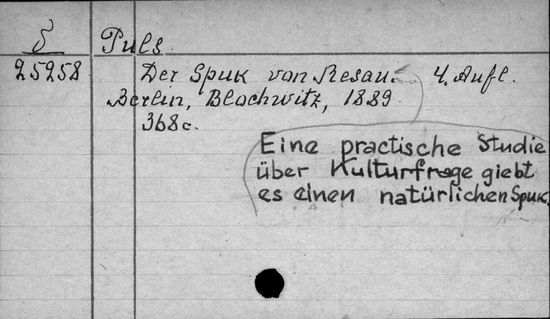 δ Puls
25258 Der Spuk von Resau. 4. Aufl.
Berlin, Blochwitz, 1889.
368 c.
Eine practische Studie
über Kulturfrage giebt
es einen natürlichen Spuk.